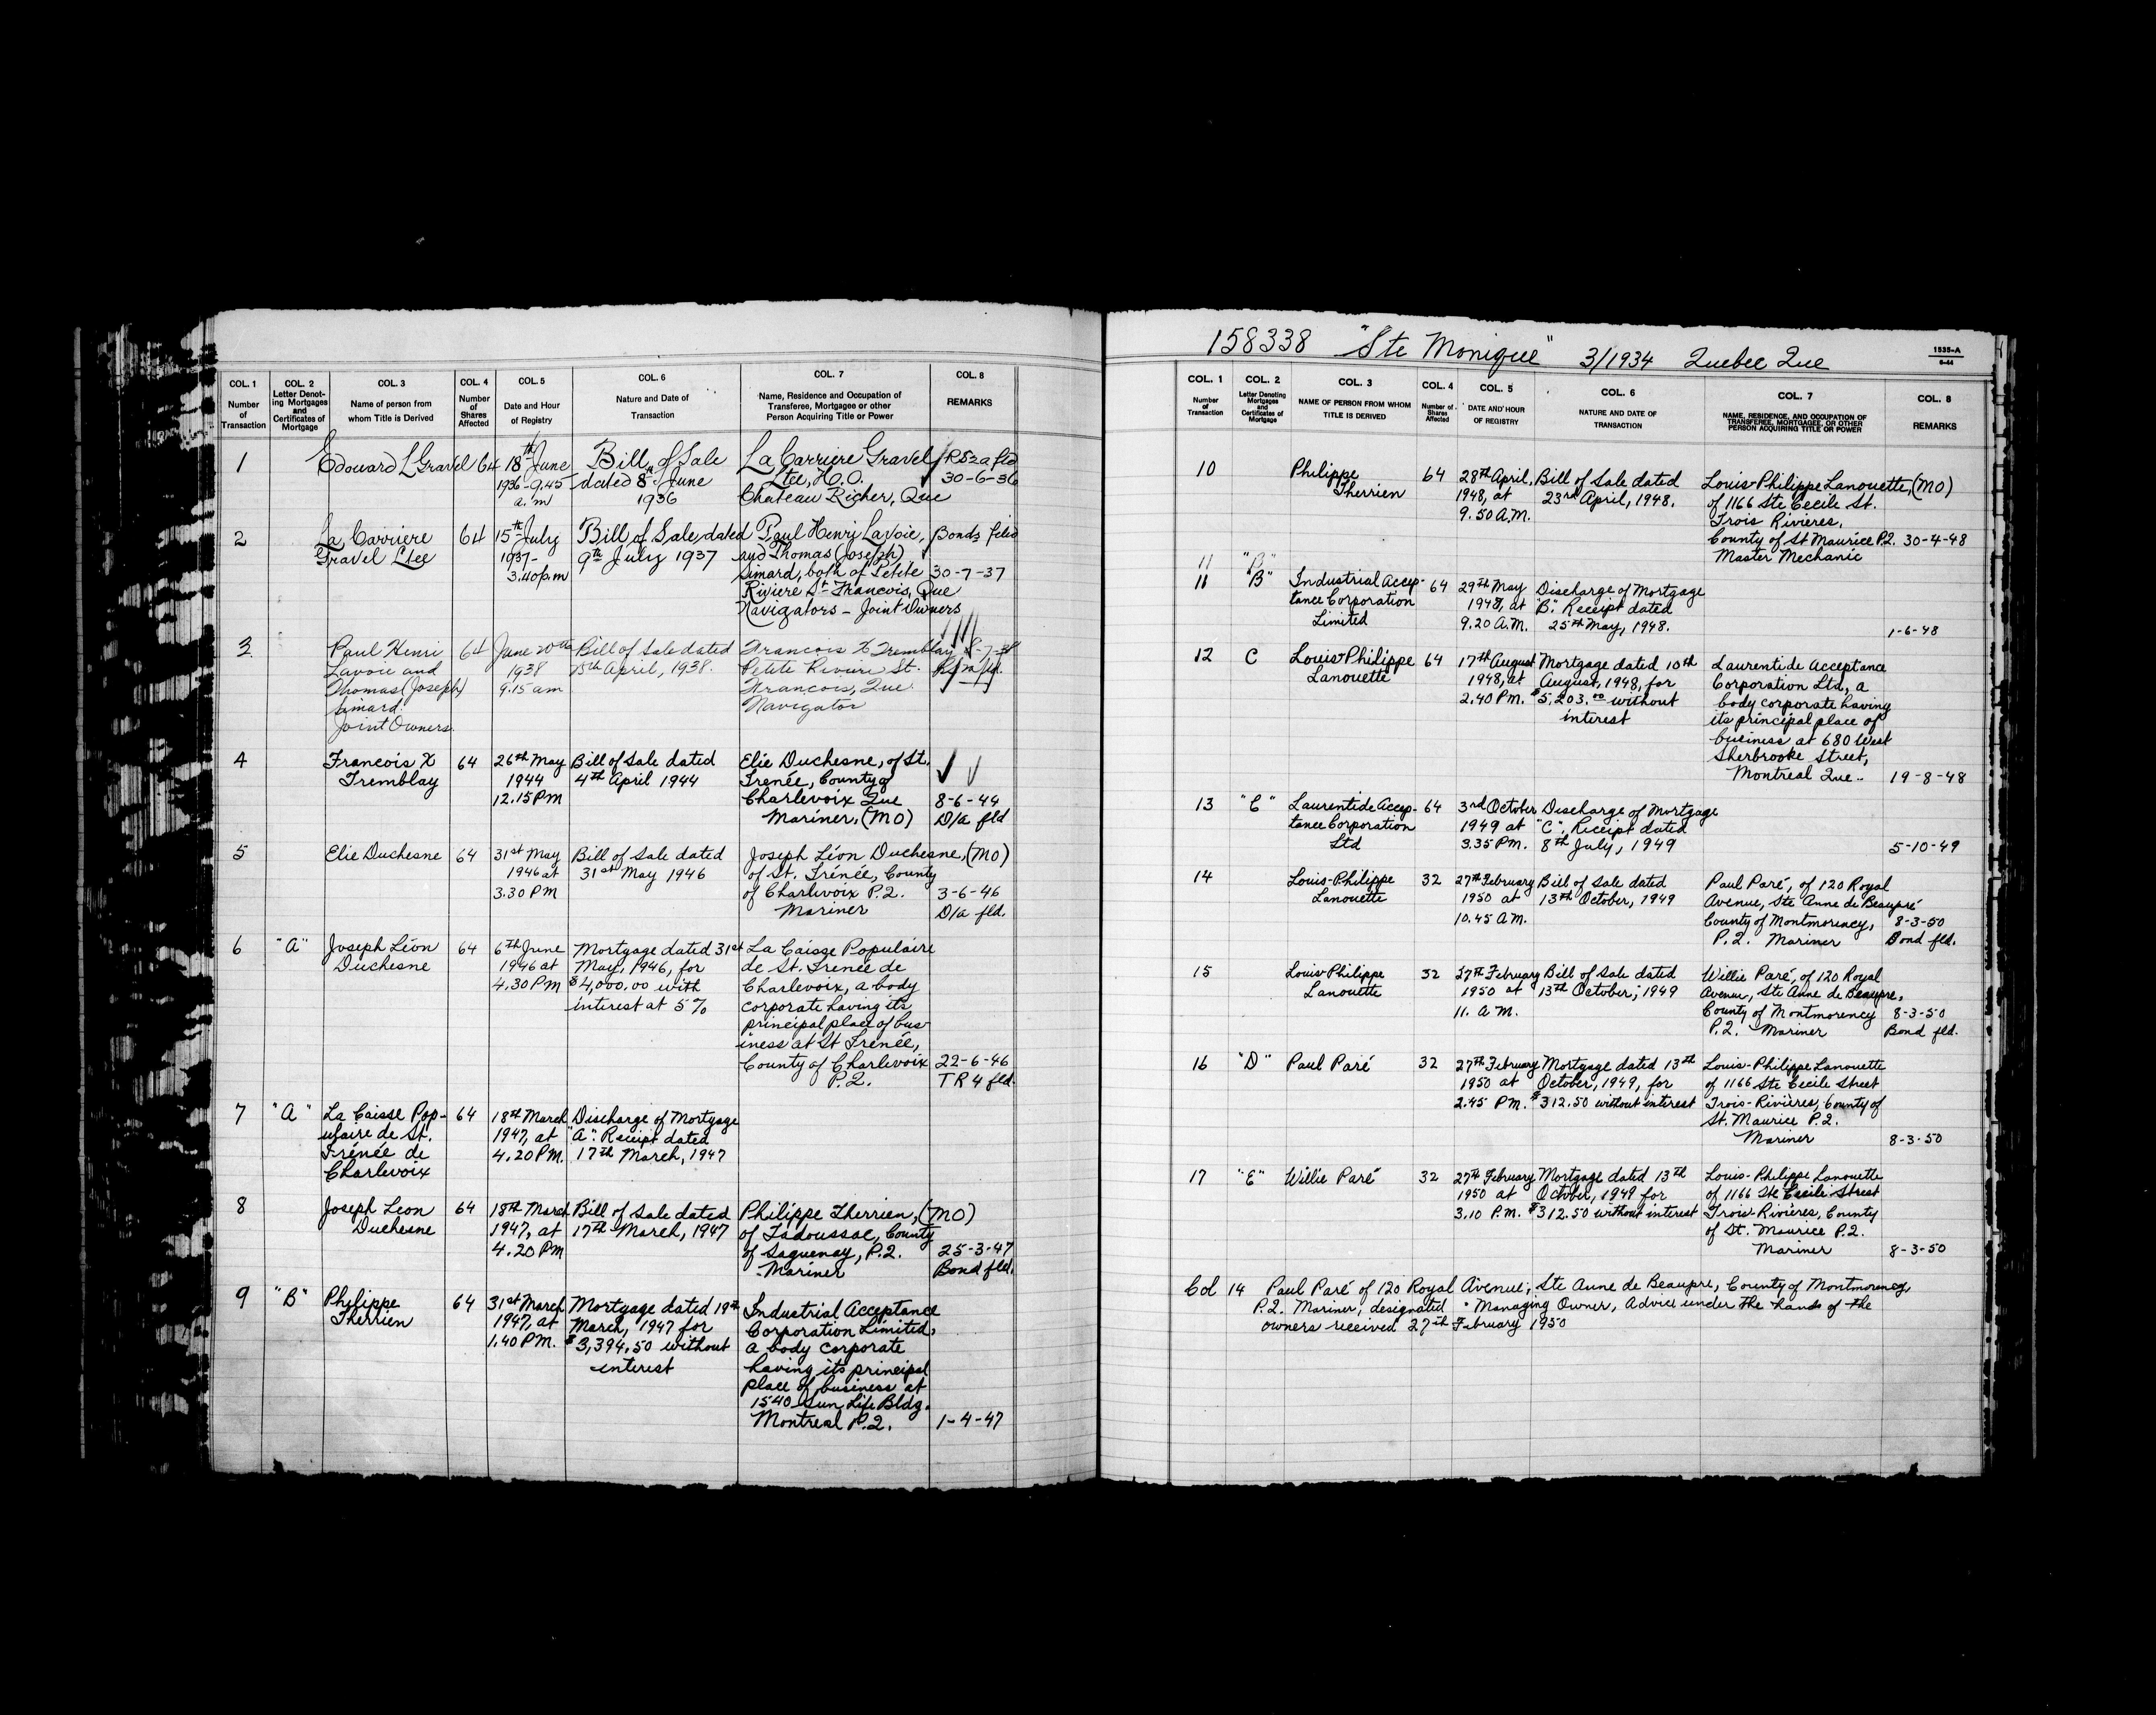 COL. 1 COL. 2 COL. 3 COL. 4 COL. 5 COL. 6 COL. 7 COL. 8
Number of Transaction
Letter Denoting Mortgages and Certificates of Mortgage
Name of person from whom Title is Derived
Number of Shares Affected
Date and Hour of Registry
Nature and Date of Transaction
Name, Residence and Occupation of Transferee, Mortgagee or other Person Acquiring Title or Power
REMARKS
1 Edouard L Gravel 64 18th June Bill of Sale La Carriere Gravel R52a fld
1936-9.45 dated 8th June Ltee, H.O. 30-6-36
a.m 1936 Chateau Richer, Que
2 La Carriere 64 15th July Bill of Sale, dated Paul Henry Lavoie, Bonds filed
Gravel Ltee 1937- 9th July 1937 and Thomas (Joseph)
3.40 p.m Simard, both of Petite 30-7-37
Riviere St-Francois, Que
Navigators - Joint Owners
3 Paul Henri 64 June 20th Bill of Sale dated Francois X Tremblay
Lavoie and 1938 15th April, 1938. Petite Riviere St.
Thomas (Joseph) 9.15 am Francois, Que.
Simard. Navigator
Joint Owners.
4 Francois X 64 26th May Bill of Sale dated Elie Duchesne, of St.
Tremblay 1944 4th April 1944 Irenée, County of
12.15 PM Charlevoix Que 8-6-44
Mariner, (MO) D/a fld
5 Elie Duchesne 64 31st May Bill of Sale dated Joseph Léon Duchesne, (MO)
1946 at 31st May 1946 of St. Irénée, County
3.30 PM of Charlevoix P.Q. 3-6-46
Mariner D/a fld.
6 "A" Joseph Léon 64 6th June Mortgage dated 31st La Caisse Populaire
Duchesne 1946 at May, 1946, for de St. Irenée de
4.30 PM $4,000.00 with Charlevoix, a body
interest at 5% corporate having its
principal place of bus-
iness at St Irenée,
County of Charlevoix 22-6-46
P.Q. TR4 fld.
7 "A" La Caisse Pop- 64 18th March Discharge of Mortgage
ulaire de St. 1947, at "A". Receipt dated
Irénée de 4.20 PM. 17th March, 1947
Charlevoix
8 Joseph Leon 64 18th March Bill of Sale dated Philippe Therrien, (MO)
Duchesne 1947, at 17th March, 1947 of Tadoussac, County
4.20 PM of Saguenay, P.Q. 25-3-47
-Mariner Bond fld.
9 "B" Philippe 64 31st March Mortgage dated 19th Industrial Acceptance
Therrien 1947, at March, 1947 for Corporation Limited,
1.40 PM. $3,394.50 without a body corporate
interest having its principal
place of business at
1540 Sun Life Bldg.
Montreal P.Q. 1-4-47
158338 "Ste Monique" 3/1934 Quebec Que
1535-A
6-44
COL. 1 COL. 2 COL. 3 COL. 4 COL. 5 COL. 6 COL. 7 COL. 8
Number of Transaction
Letter Denoting Mortgages and Certificates of Mortgage
NAME OF PERSON FROM WHOM TITLE IS DERIVED
Number of Shares Affected
DATE AND HOUR OF REGISTRY
NATURE AND DATE OF TRANSACTION
NAME, RESIDENCE, AND OCCUPATION OF TRANSFEREE, MORTGAGEE, OR OTHER PERSON ACQUIRING TITLE OR POWER
REMARKS
10 Philippe 64 28th April, Bill of Sale dated Louis-Philippe Lanouette, (MO)
Therrien 1948, at 23rd April, 1948. of 1166 Ste Cecile St.
9.50 A.M. Trois Rivieres,
County of St Maurice P.Q. 30-4-48
Master Mechanic
11 "B"
11 "B" Industrial Accep- 64 29th May Discharge of Mortgage
tance Corporation 1948, at "B". Receipt dated
Limited 9.20 A.M. 25th May, 1948.
1-6-48
12 C Louis-Philippe 64 17th August Mortgage dated 10th Laurentide Acceptance
Lanouette 1948, at August, 1948, for Corporation Ltd, a
2.40 PM. $5,203.00 without body corporate having
interest its principal place of
business at 680 West
Sherbrooke Street,
Montreal Que.. 19-8-48
13 "C" Laurentide Accep- 64 3rd October Discharge of Mortgage
tance Corporation 1949 at "C". Receipt dated
Ltd 3.35 PM. 8th July, 1949 5-10-49
14 Louis-Philippe 32 27th February Bill of Sale dated Paul Paré, of 120 Royal
Lanouette 1950 at 13th October, 1949 Avenue, Ste Anne de Beaupré
10.45 A.M. County of Montmorency, 8-3-50
P.Q. Mariner Bond fld.
15 Louis-Philippe 32 27th February Bill of Sale dated Willie Paré, of 120 Royal
Lanouette 1950 at 13th October, 1949 Avenue, Ste Anne de Beaupre,
11. A.M. County of Montmorency 8-3-50
P.Q. Mariner Bond fld.
16 "D" Paul Paré 32 27th February Mortgage dated 13th Louis-Philippe Lanouette
1950 at October, 1949, for of 1166 Ste Cecile Street
2.45 PM. $312.50 without interest Trois-Rivières, County of
St. Maurice P.Q.
Mariner 8-3-50
17 "E" Willie Paré 32 27th February Mortgage dated 13th Louis-Philippe Lanouette
1950 at October, 1949 for of 1166 Ste Cecile Street
3.10 P.M. $312.50 without interest Trois-Rivières, County
of St. Maurice P.Q.
Mariner 8-3-50
Col 14 Paul Paré of 120 Royal Avenue, Ste Anne de Beaupre, County of Montmorency,
P.Q. Mariner, designated "Managing Owner, Advice under the hands of the
owners received 27th February 1950